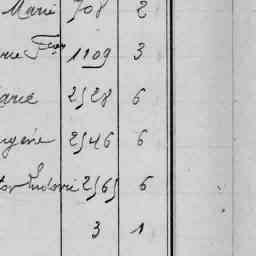 Marie 708 2
1109 3
arie 2528 6
ugénie 2546 6
tor Ludovic 2565 6
3 1